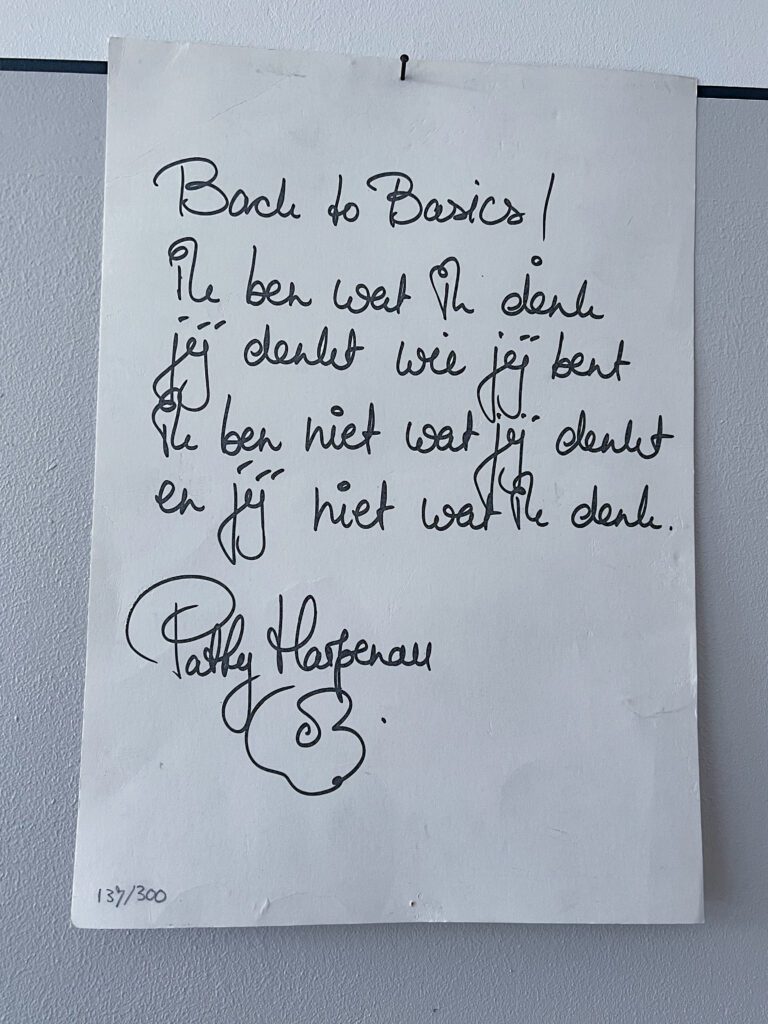 Back to Basics!
Ik ben wat ik denk
jij denkt wie jij bent
Ik ben niet wat jij denkt
en jij niet wat ik denk.
Patty Harpenau
137/300